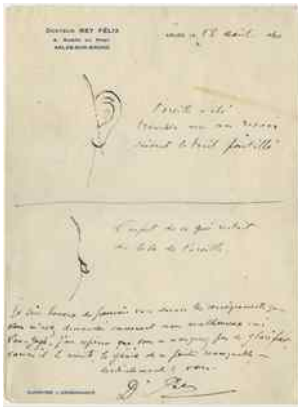 DOCTEUR REY FÉLIX
ARLES-SUR-RHÔNE
ARLES, LE 18 août
L'oreille a été
tranchée avec un rasoir
suivant le trait pointillé
L'aspect de ce qui restait
du lobe de l'oreille
Je suis heureux de pouvoir vous donner les renseignements que
vous m'avez demandés concernant mon malheureux ami
Van Gogh. J'espère que vous ne manquerez pas de glorifier
comme il le mérite le génie de ce peintre remarquable
Cordialement à vous
Dr Rey